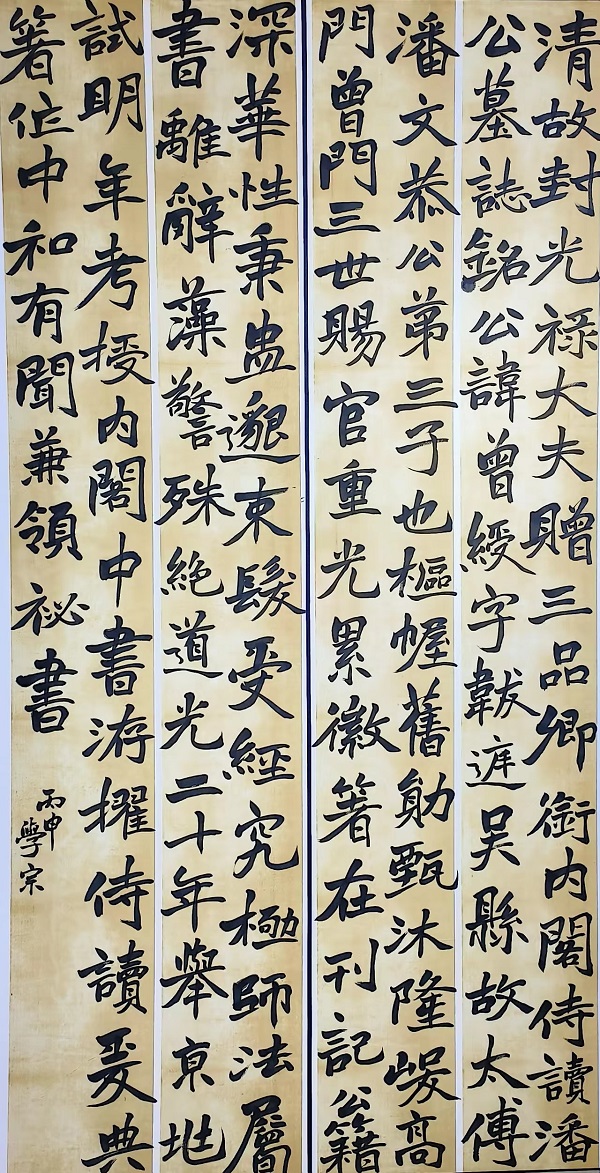 清故封光禄大夫贈三品卿銜内閣侍讀潘
公墓誌銘公諱曾綬字韍遟吴縣故太傅
潘文恭公弟三子也樞幄舊勛甄沐隆峻高
門曾門三世賜官重光累徽箸在刊記公籍
深華性秉盅邈束髮受經究極師法屬
書離辭藻警殊絶道光二十年舉京兆
試明年考授内閣中書洊擢侍讀爰典
箸作中和有聞兼領祕書
丙申
學宗